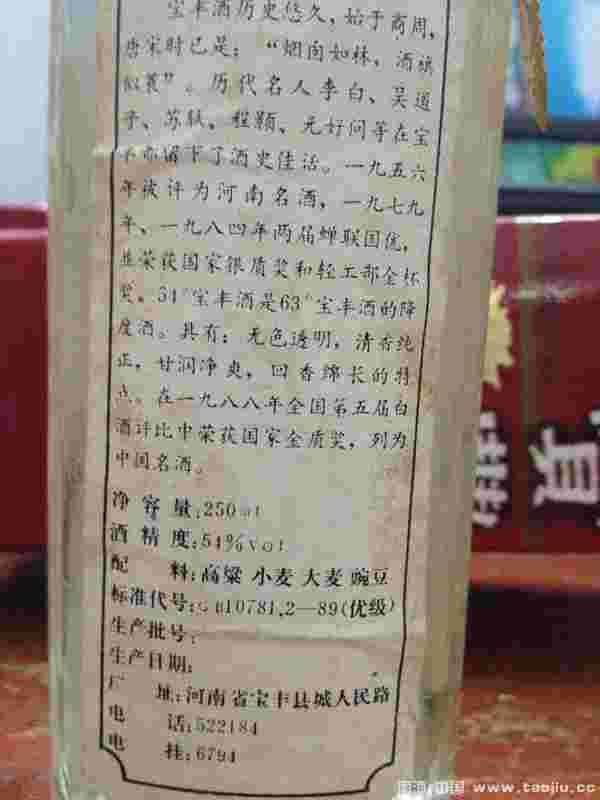 宝丰酒历史悠久，始于商周，
唐宋时已是：“烟囱如林，酒旗
似蓑”。历代名人李白、吴道
子、苏轼、程颢、元好问等在宝
丰亦留下了酒史佳话。一九五六
年被评为河南名酒，一九七九
年、一九八四年两届蝉联国优，
並荣获国家银质奖和轻工部金杯
奖。54°宝丰酒是63°宝丰酒的降
度酒。具有：无色透明，清香纯
正，甘润净爽，回香绵长的特
点。在一九八八年全国第五届白
酒评比中荣获国家金质奖，列为
中国名酒。
净容量:250ml
酒精度:54%vol
配料:高粱 小麦 大麦 豌豆
标准代号:GB10781.2—89(优级)
生产批号:
生产日期:
厂址:河南省宝丰县城人民路
电话:522184
电挂:6794
中国 www.taojiu.cc